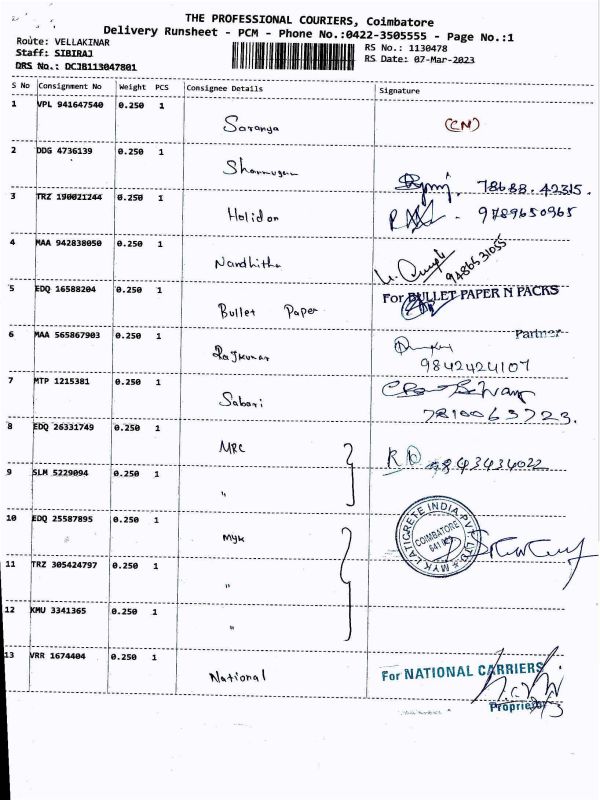 THE PROFESSIONAL COURIERS, Coimbatore
Delivery Runsheet - PCM - Phone No.:0422-3505555 - Page No.:1
Route: VELLAKINAR
RS No.: 1130478
Staff: SIBIRAJ
RS Date: 07-Mar-2023
DRS No.: DCJB113047801
S No Consignment No Weight PCS Consignee Details Signature
1 VPL 941647540 0.250 1 Saranya (CN)
2 DDG 4736139 0.250 1 Shanmugam 78688.42315.
3 TRZ 190021244 0.250 1 Holidon 9789650965
4 MAA 942838050 0.250 1 Nandhitha 9486531055
5 EDQ 16588204 0.250 1 Bullet Paper For BULLET PAPER N PACKS
Partner
6 MAA 565867903 0.250 1 Rajkumar 9842424107
7 MTP 1215381 0.250 1 Sabari 7810063723.
8 EDQ 26331749 0.250 1 MRC 9843434022
9 SLM 5229094 0.250 1 "
10 EDQ 25587895 0.250 1 MYK MYK LATICRETE INDIA PVT LTD COIMBATORE
11 TRZ 305424797 0.250 1 "
12 KMU 3341365 0.250 1 "
13 VRR 1674404 0.250 1 National For NATIONAL CARRIERS
Proprietor